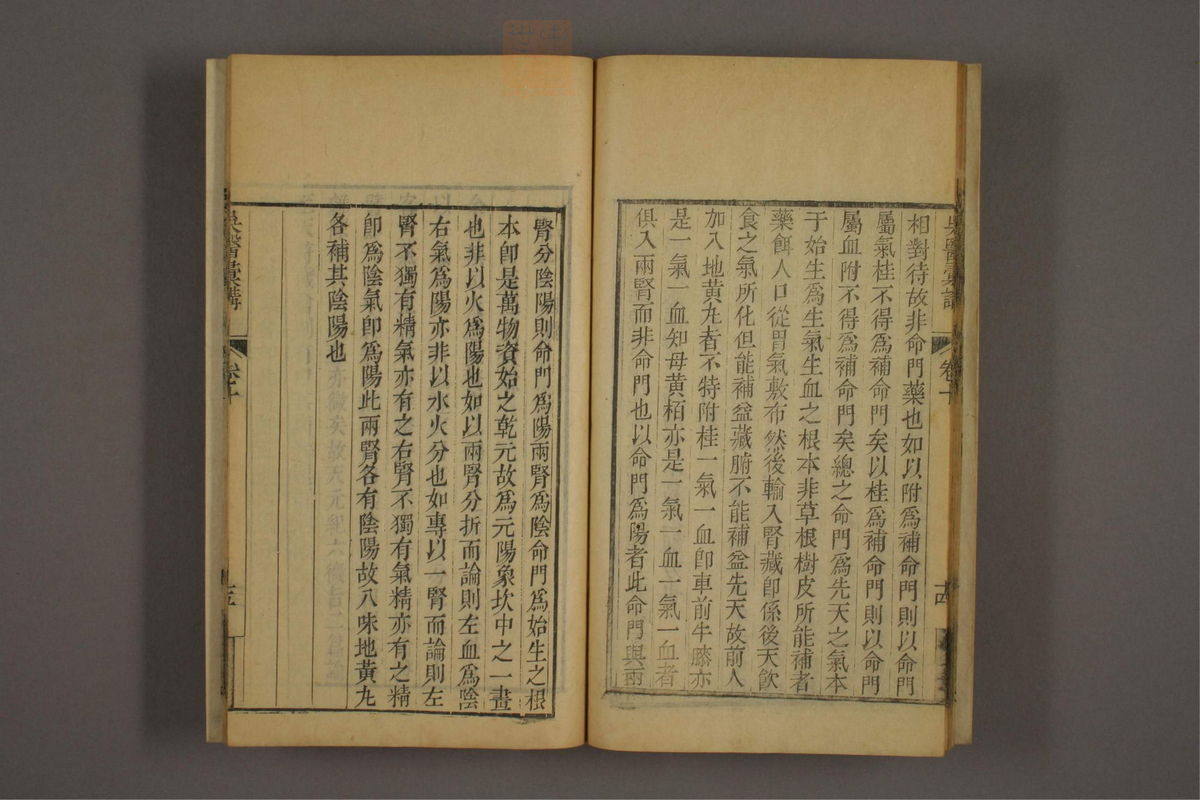 吳醫彙講
卷十
相對待故非命門藥也如以附爲補命門則以命門
屬氣桂不得爲補命門矣以桂爲補命門則以命門
屬血附不得爲補命門矣總之命門爲先天之氣本
于始生爲生氣生血之根本非草根樹皮所能補者
藥餌人口從胃氣敷布然後輸入腎藏卽係後天飮
食之氣所化但能補益藏腑不能補益先天故前人
加入地黃九者不特附桂一氣一血卽車前牛膝亦
是一氣一血知母黃栢亦是一氣一血一氣一血者
俱入兩腎而非命門也以命門爲陽者此命門與兩
腎分陰陽則命門爲陽兩腎爲陰命門爲始生之根
本卽是萬物資始之乾元故爲元陽象坎中之一畫
也非以火爲陽也如以兩腎分折而論則左血爲陰
右氣爲陽亦非以水火分也如專以一腎而論則左
腎不獨有精氣亦有之右腎不獨有氣精亦有之精
卽爲陰氣卽爲陽此兩腎各有陰陽故八味地黃九
各補其陰陽也
吳醫彙講
卷十